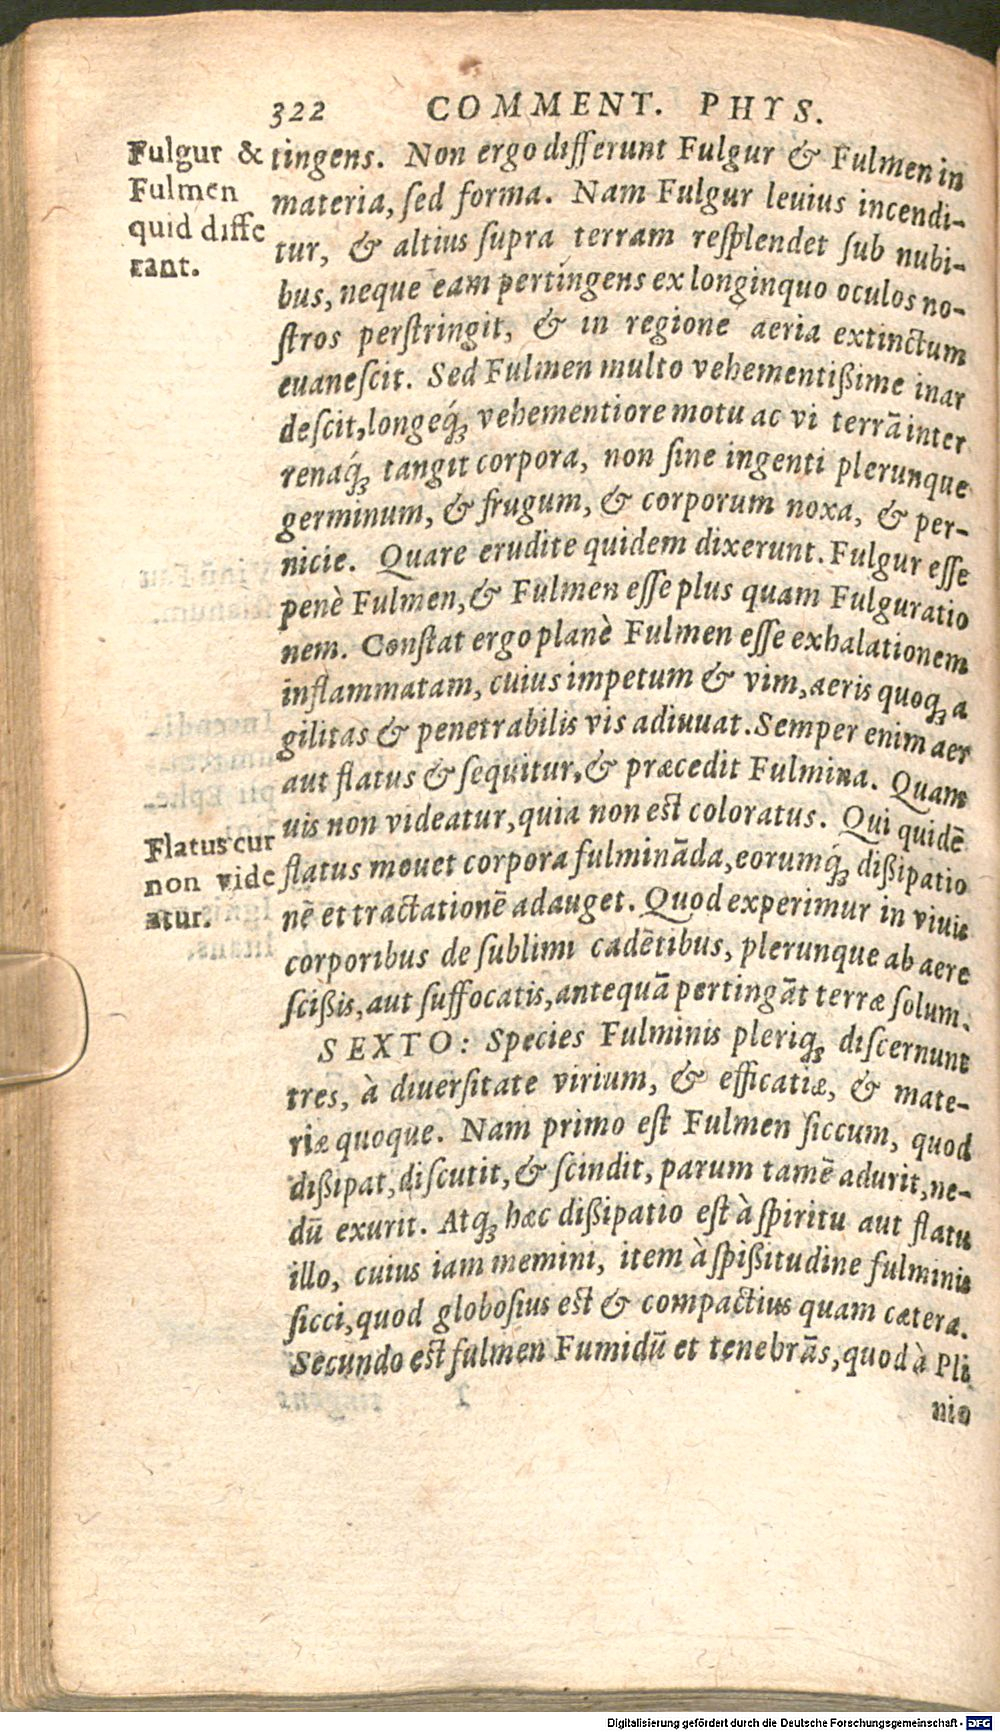 322 COMMENT. PHYS.
Fulgur &
Fulmen
quid diffe
rant.
tingens. Non ergo differunt Fulgur & Fulmen in
materia, sed forma. Nam Fulgur leuius incendi-
tur, & altius supra terram resplendet sub nubi-
bus, neque eam pertingens ex longinquo oculos no-
stros perstringit, & in regione aeria extinctum
euanescit. Sed Fulmen multo vehementißime inar
descit, longeq́; vehementiore motu ac vi terrā inter
renaq́; tangit corpora, non sine ingenti plerunque
germinum, & frugum, & corporum noxa, & per-
nicie. Quare erudite quidem dixerunt. Fulgur esse
penè Fulmen, & Fulmen esse plus quam Fulguratio
nem. Constat ergo planè Fulmen esse exhalationem
inflammatam, cuius impetum & vim, aeris quoq; a
gilitas & penetrabilis vis adiuuat. Semper enim aer
aut flatus & sequitur, & præcedit Fulmina. Quam
uis non videatur, quia non est coloratus. Qui quidē
Flatus cur
non vide
atur.
flatus mouet corpora fulmināda, eorumq́; dißipatio
nē et tractationē adauget. Quod experimur in viuis
corporibus de sublimi cadētibus, plerunque ab aere
scißis, aut suffocatis, antequā pertingāt terræ solum.
SEXTO: Species Fulminis pleriq; discernunt
tres, à diuersitate virium, & efficatiæ, & mate-
riæ quoque. Nam primo est Fulmen siccum, quod
dißipat, discutit, & scindit, parum tamē adurit, ne-
dū exurit. Atq; hæc dißipatio est à spiritu aut flatu
illo, cuius iam memini, item à spißitudine fulminis
sicci, quod globosius est & compactius quam cætera.
Secundo est fulmen Fumidū et tenebrās, quod à Pli
nio
Digitalisierung gefördert durch die Deutsche Forschungsgemeinschaft - DFG